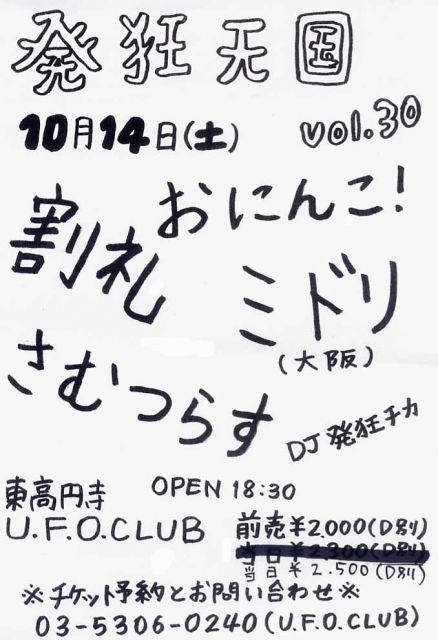 発狂天国
vol.30
10月14日(土)
おにんこ!
割礼
ミドリ
(大阪)
さむつらす
DJ 発狂チカ
東高円寺
OPEN 18:30
U.F.O.CLUB
前売¥2.000(D別)
当日¥2.300(D別)
当日¥2.500(D別)
※チケット予約とお問い合わせ※
03-5306-0240(U.F.O.CLUB)